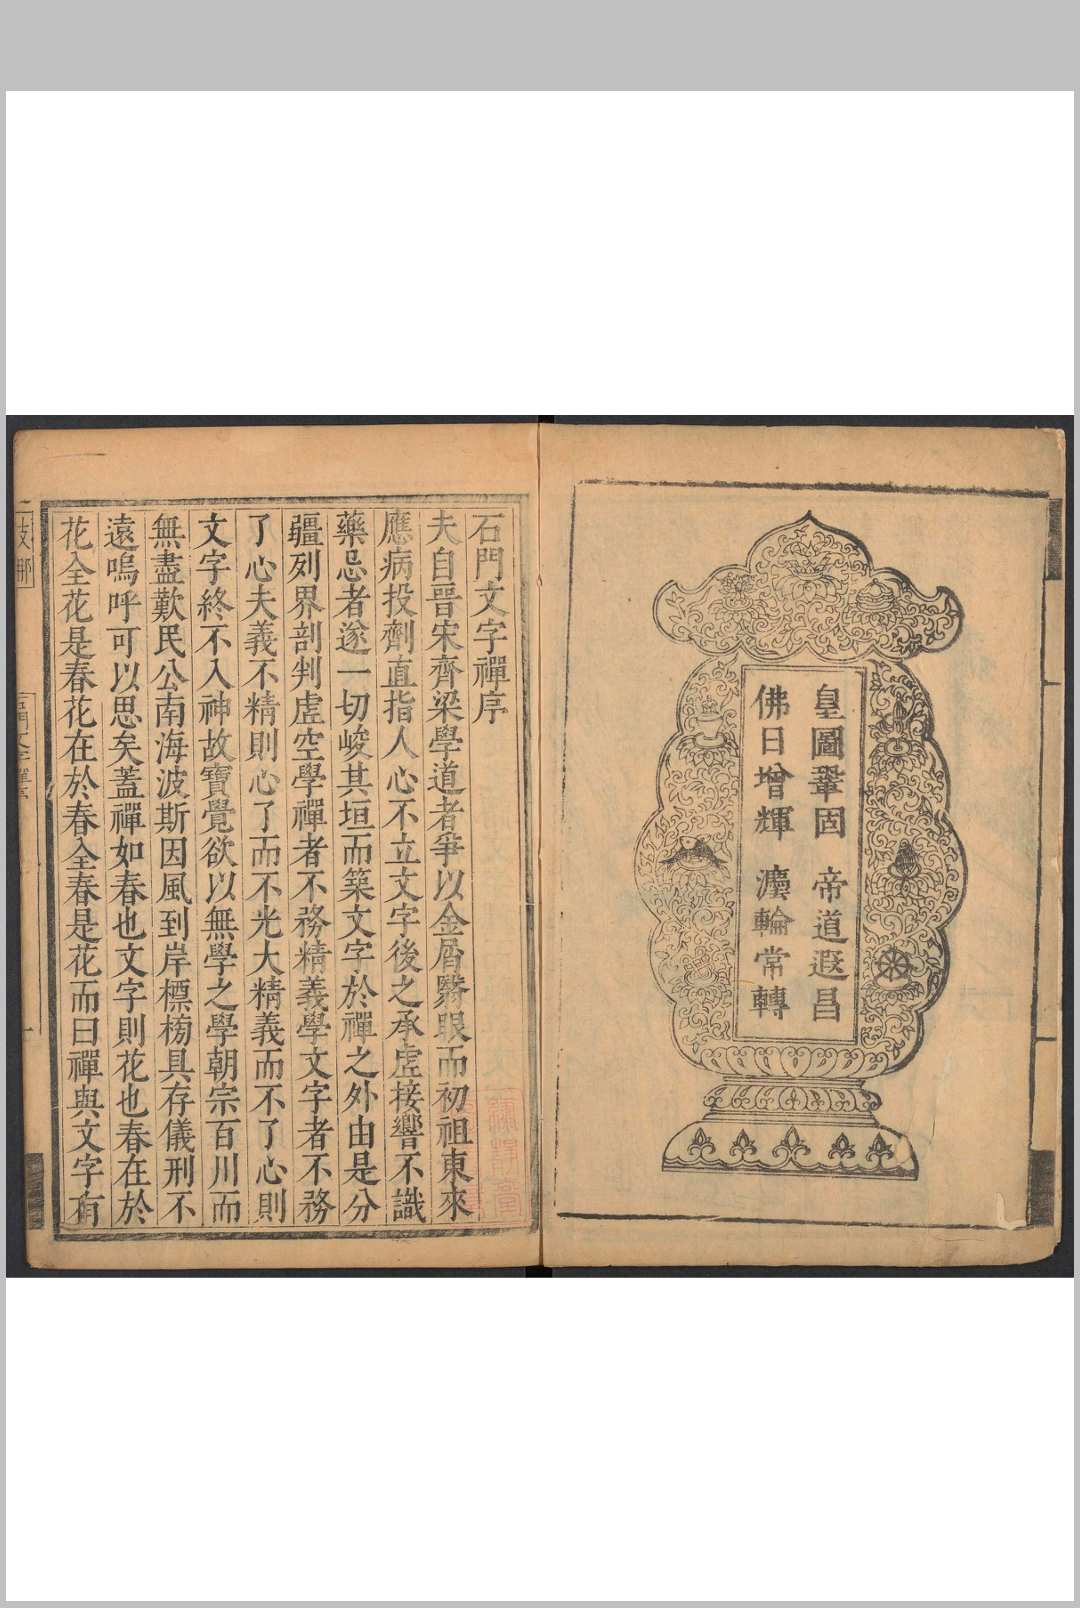 皇圖鞏固 帝道遐昌
佛日增輝 灋輪常轉
石門文字禪序
夫自晉宋齊梁學道者爭以金屑翳眼而初祖東來
應病投劑直指人心不立文字後之承虛接響不識
藥忌者遂一切峻其垣而築文字於禪之外由是分
疆列界剖判虛空學禪者不務精義學文字者不務
了心夫義不精則心了而不光大精義而不了心則
文字終不入神故寶覺欲以無學之學朝宗百川而
無盡歎民公南海波斯因風到岸標榜具存儀刑不
遠嗚呼可以思矣蓋禪如春也文字則花也春在於
花全花是春花在於春全春是花而曰禪與文字有